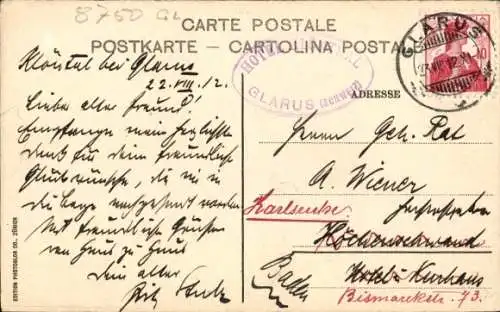 8750 GL
CARTE POSTALE
POSTKARTE – CARTOLINA POSTALE
Klöntal bei Glarus
22. VIII. 12.
Lieber alter Freund!
Empfange mein herzlichsten
Dank für dein freundlichen
Glückwünsche, die mir in
die Berge nachgesandt worden
Mit freundlichen Grüssen
von Haus zu Haus
Dein alter
Fritz
HOTEL
GLARUS (Schweiz)
GLARUS
ADRESSE
Herrn Geh. Rat
A. Wiener
Karlsruhe
Höchenschwand
Baden
Hotel Kurhaus
Bismarckstr. 73.
EDITION PHOTOGLOB CO., ZÜRICH